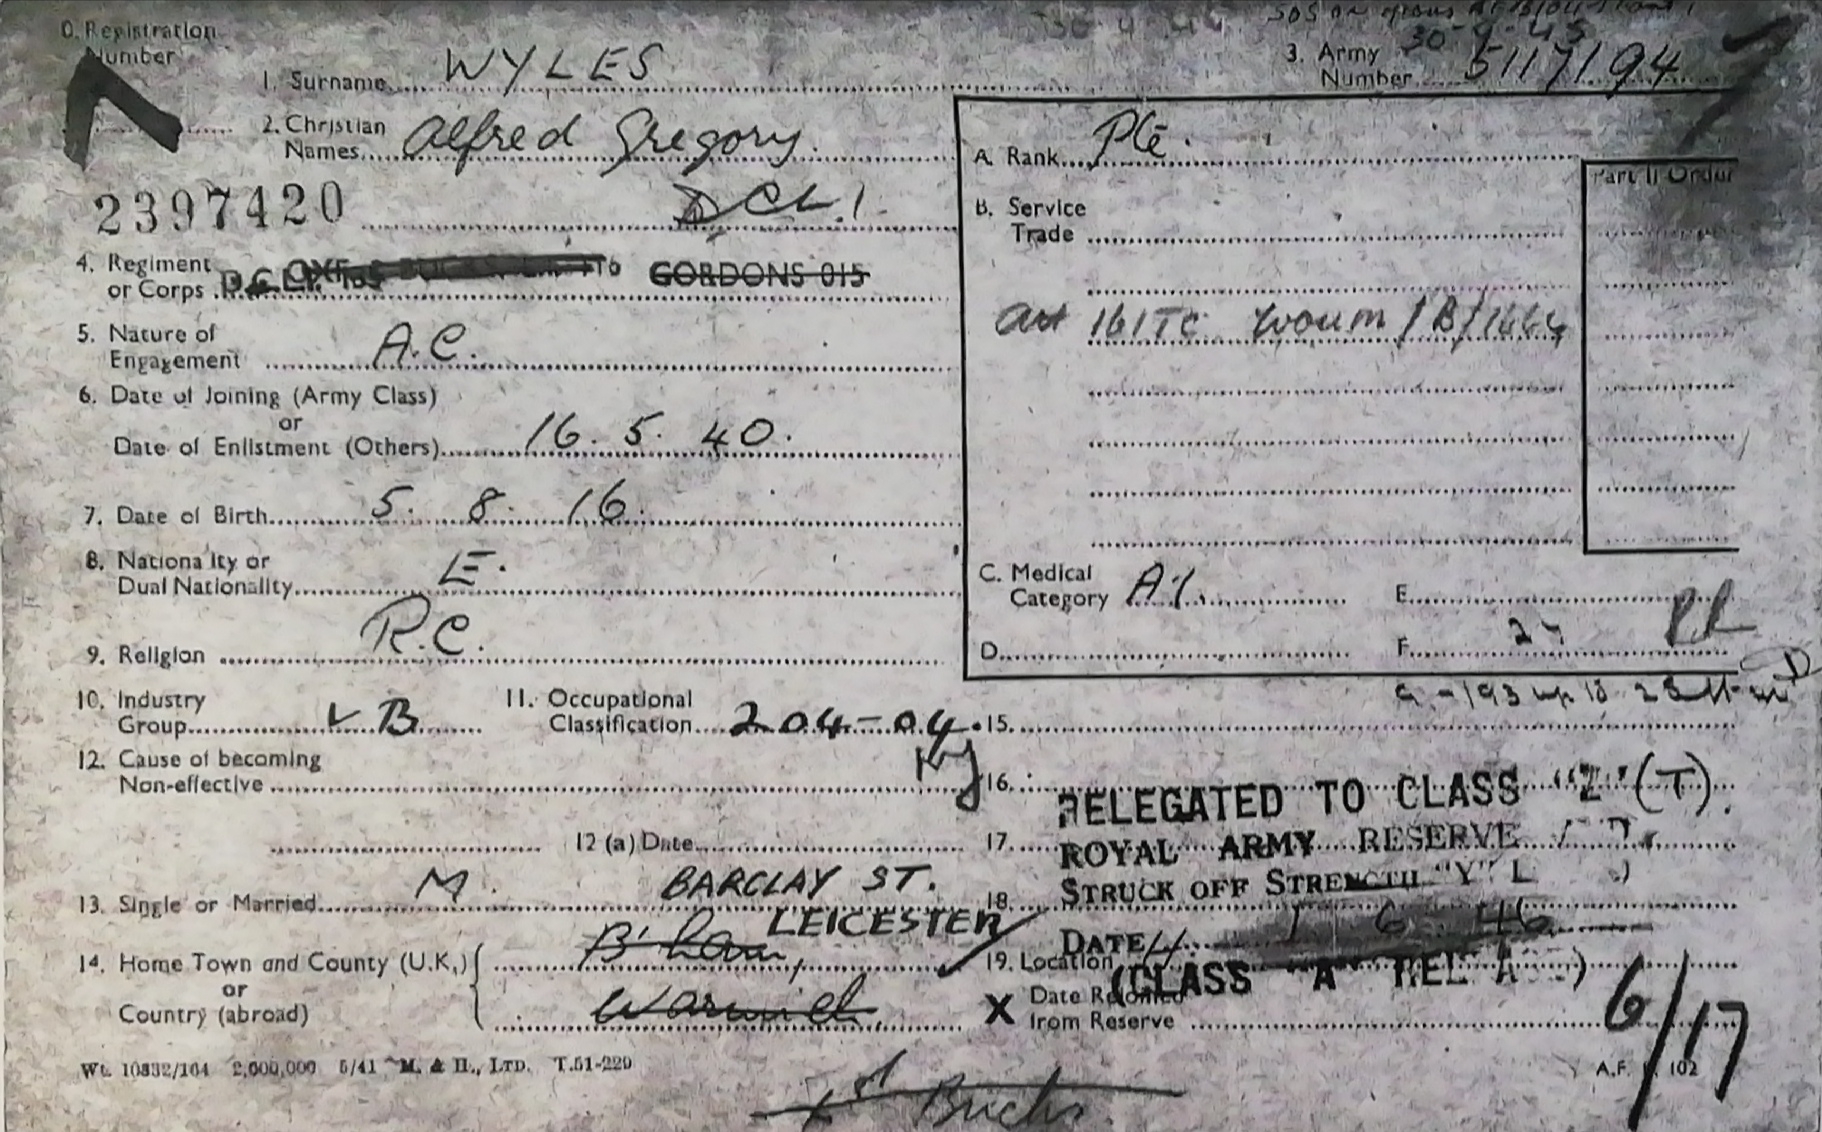 0. Registration Number
1. Surname WYLES
3. Army Number 5117194
30-4-45
2. Christian Names Alfred Gregory.
A. Rank Pte.
Part II Order
2397420 DCLI
B. Service Trade
4. Regiment or Corps GORDONS 015
5. Nature of Engagement A.C.
161TC
6. Date of Joining (Army Class)
or
Date of Enlistment (Others) 16. 5. 40.
7. Date of Birth 5. 8. 16.
8. Nationality or Dual Nationality E.
C. Medical Category A1. E.
9. Religion R.C.
D. F.
10. Industry Group B
11. Occupational Classification 204-04.
15.
12. Cause of becoming Non-effective
16. RELEGATED TO CLASS "Z" (T).
12 (a) Date
17. ROYAL ARMY RESERVE
13. Single or Married M.
BARCLAY ST.
18. STRUCK OFF STRENGTH "Y" L
LEICESTER
DATE 1 6 46
14. Home Town and County (U.K.) B'ham,
or
Country (abroad) Warwick
19. Location
(CLASS "A" REL
X Date Rejoined from Reserve
6/17
Wt. 10832/164 2,000,000 5/41 M. & H., LTD. T.51-229
A.F. 102
1st Bucks.